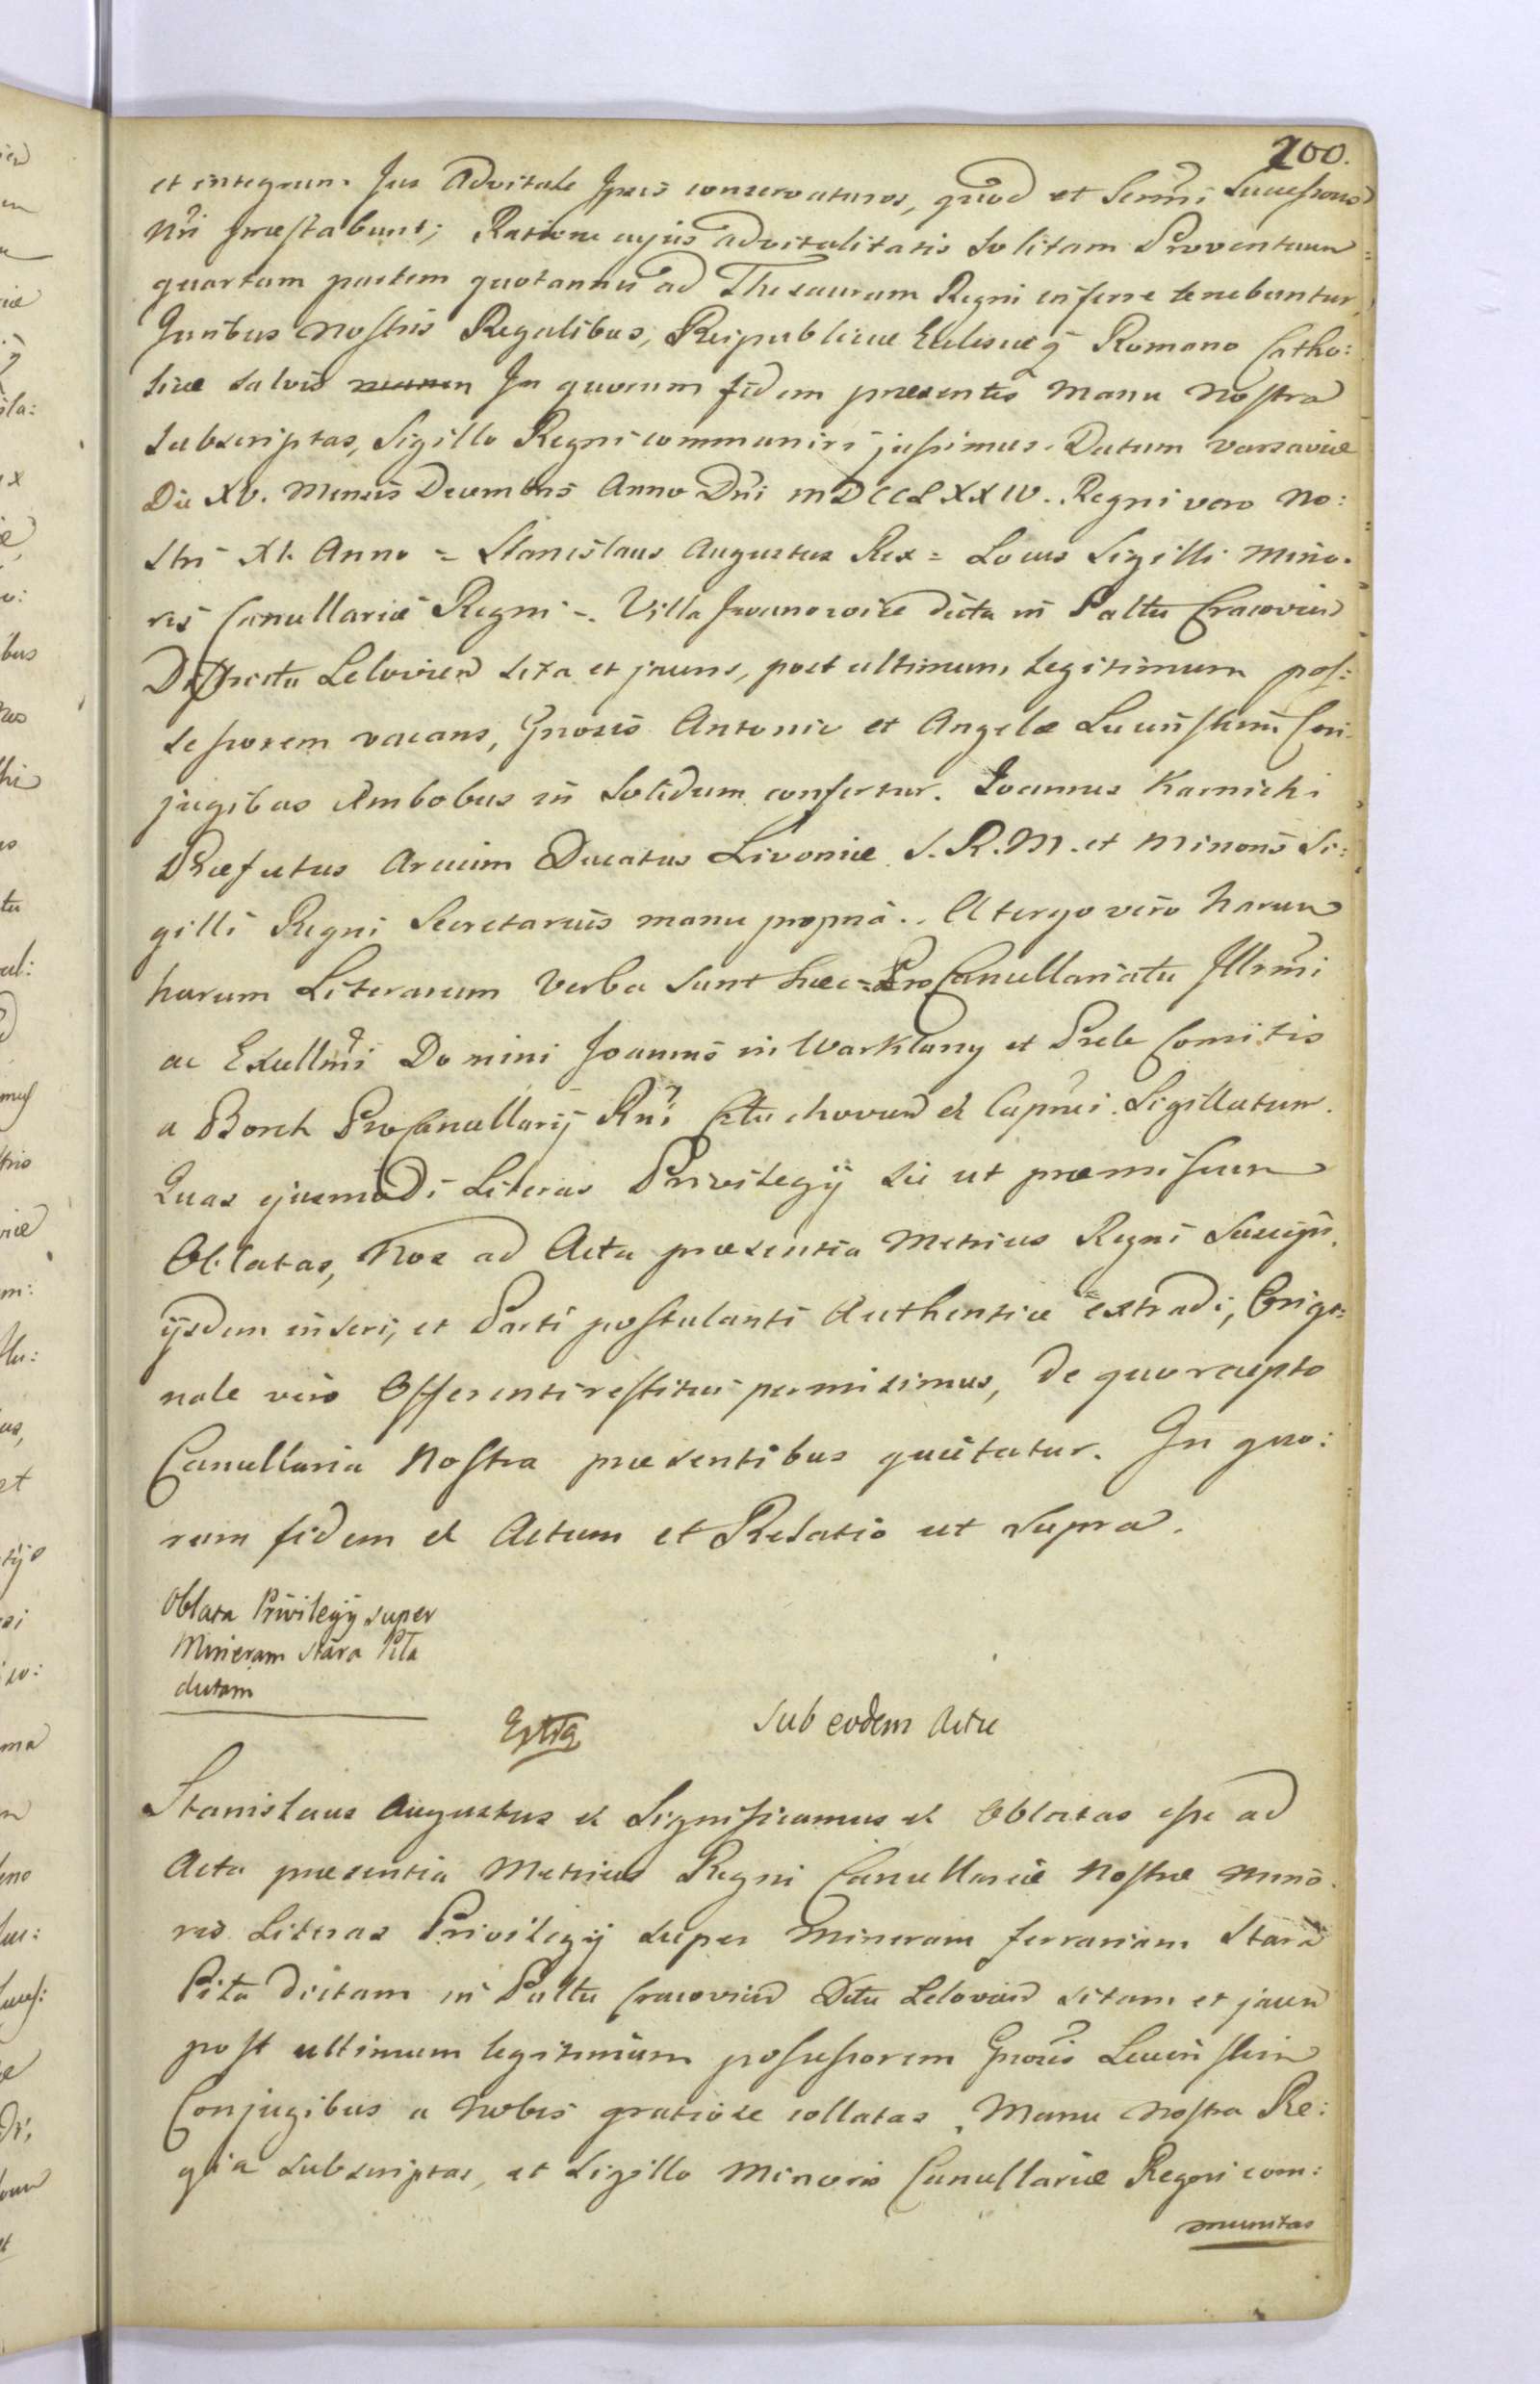 200.
et integrum Jus Advitale Ipsis conservaturos, quod et Sermi Successores
Nri praestabunt; Ratione cujus advitalitatis solitam Proventuum
quartam partem quotannis ad Thesaurum Regni inferre tenebuntur,
Juribus Nostris Regalibus, Reipublicae Eclesiaeq Romano Catho:
licae salvis In quorum fidem praesentes Manu Nostra
subscriptas, Sigillo Regni communiri jussimus. Datum Varsaviae
Die XV. Mensis Decembris Anno Dni MDCCLXXIV. Regni vero No:
stri XI. Anno = Stanislaus Augustus Rex = Locus Sigilli Mino:
ris Cancellariae Regni =. Villa Iwanowice dicta in Paltu Cracovien
Districtu Lelovien sita et jacens, post ultimum legitimum pos:
sessorem vacans, Gnosis Antonio et Angelae Conju:
jugibus Ambobus in Solidum confertur. Joannes Karnicki
Praefectus Arcium Ducatus Livoniae S. R. M. et Minoris Si:
gilli Regni Secretarius manu propria.. A tergo vero harum
harum Literarum Verba sunt haec = Pro Cancellariatu Illrmi
ac Excellmi Domini Joannis in Warklany et Prele Comitis
a Borch ProCancellarij Rni et Capnei. Sigillatum.
Quas ejusmodi Literas Privilegij sic ut praemissum
Oblatas, Nos ad Acta praesentia Metrices Regni Suscipi,
ijsdem inseri, et Parti postulanti Authentice extradi, Origi:
nale vero Offerenti restitui permisimus, de quo recepto
Cancellaria Nostra praesentibus quietatur. In quo:
rum fidem et Actum et Relatio ut supra.
Oblata Privilegij super
Mineram Stara Piła
dictam
Extrq
sub eodem Actu
Stanislaus Augustus et Significamus et Oblatas esse ad
Acta praesentia Metrices Regni Cancellariae Nostrae Mino:
ris Literas Privilegij super Mineram ferrariam Stara
Piła dictam in Paltu Cracovien Dttu Leloviend sitam et jacen
post ultimum legitimum possessorem Gnosis
Conjugibus a Nobis gratiose collatas, Manu Nostra Re:
gia subscriptas, et Sigillo Minoris Cancellariae Regni com:
munitas